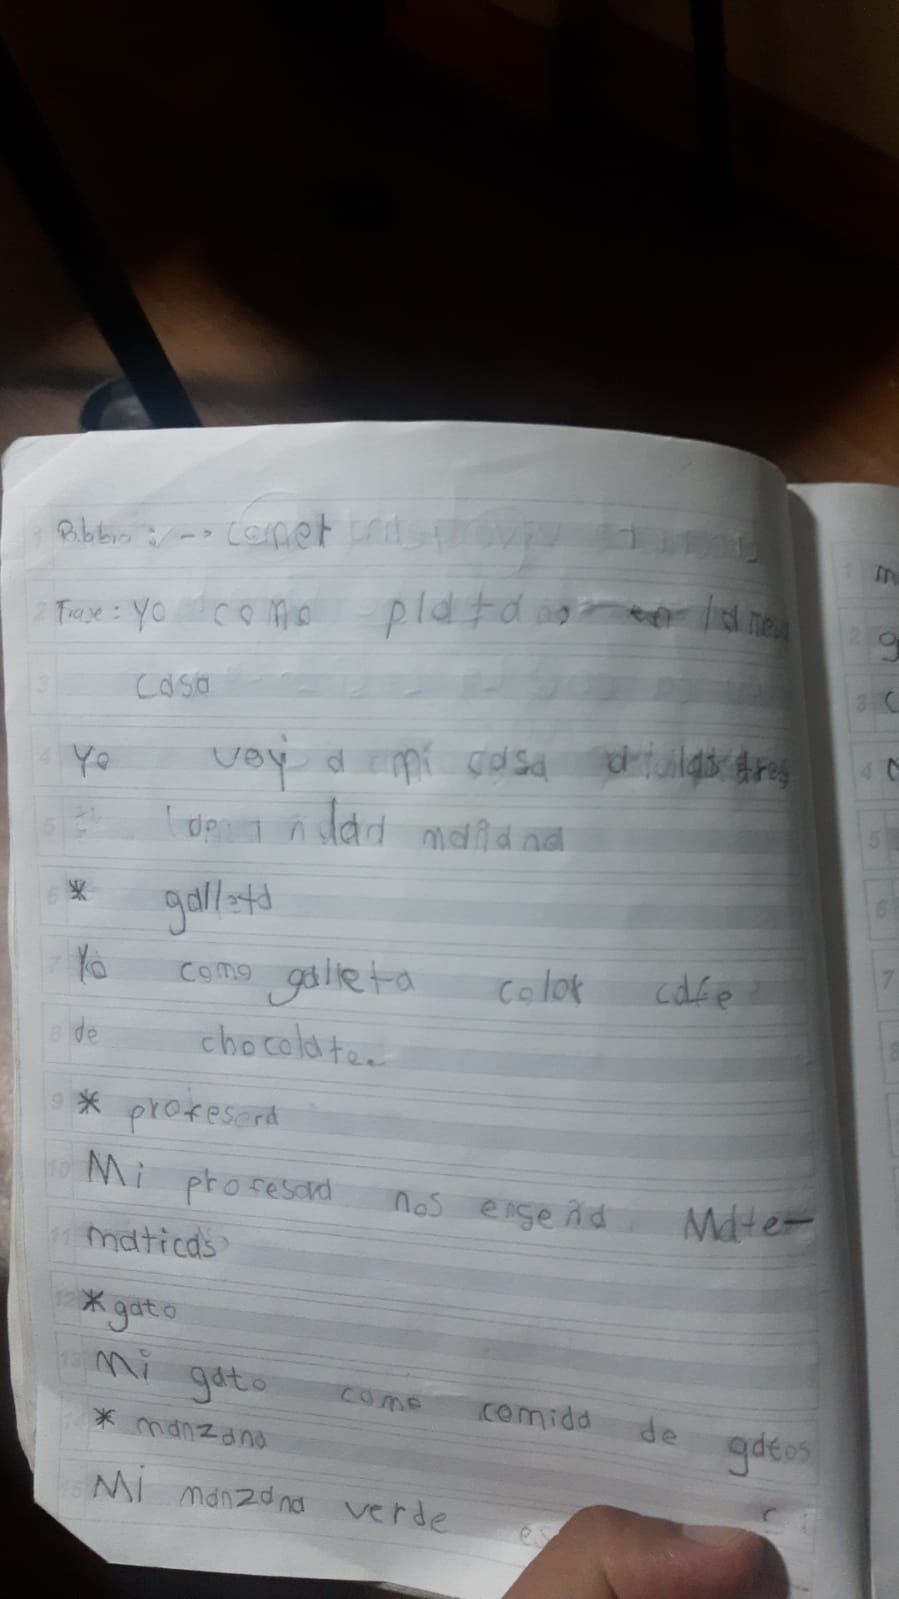 Palabra: --> comer
Frase: Yo como platano en la mesa
casa
Yo voy a mi casa tres
mañana
* galleta
Yo como galleta color cafe
de chocolate.
* profesora
Mi profesora nos enseña Mate-
maticas
* gato
Mi gato come comida de gatos
* manzana
Mi manzana verde es